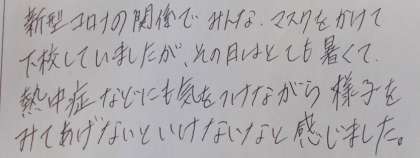 新型コロナの関係で みんな、マスクをかけて
下校していましたが、その日はとても暑くて、
熱中症などにも気をつけながら 様子を
みてあげないといけないなと感じました。